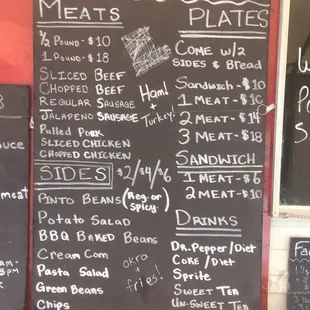 MEATS
½ POUND - $10
1 POUND - $18
SLICED BEEF
CHOPPED BEEF
REGULAR SAUSAGE
JALAPENO SAUSAGE
Pulled Pork
SLICED CHICKEN
CHOPPED CHICKEN
Ham!
+
Turkey!
SIDES
$2/$4/$6
PINTO BEANS (Reg. or Spicy)
Potato Salad
BBQ BAKED Beans
Cream Corn
Pasta Salad
Green Beans
Chips
okra
+
fries!
PLATES
COME W/2
SIDES & Bread
Sandwich - $10
1 MEAT - $10
2 MEAT - $14
3 MEAT - $18
SANDWICH
1 MEAT - $6
2 MEAT - $10
DRINKS
Dr. Pepper/Diet
Coke/Diet
Sprite
Sweet Tea
Un-Sweet Tea
auce
meat
PM
W
Po
S